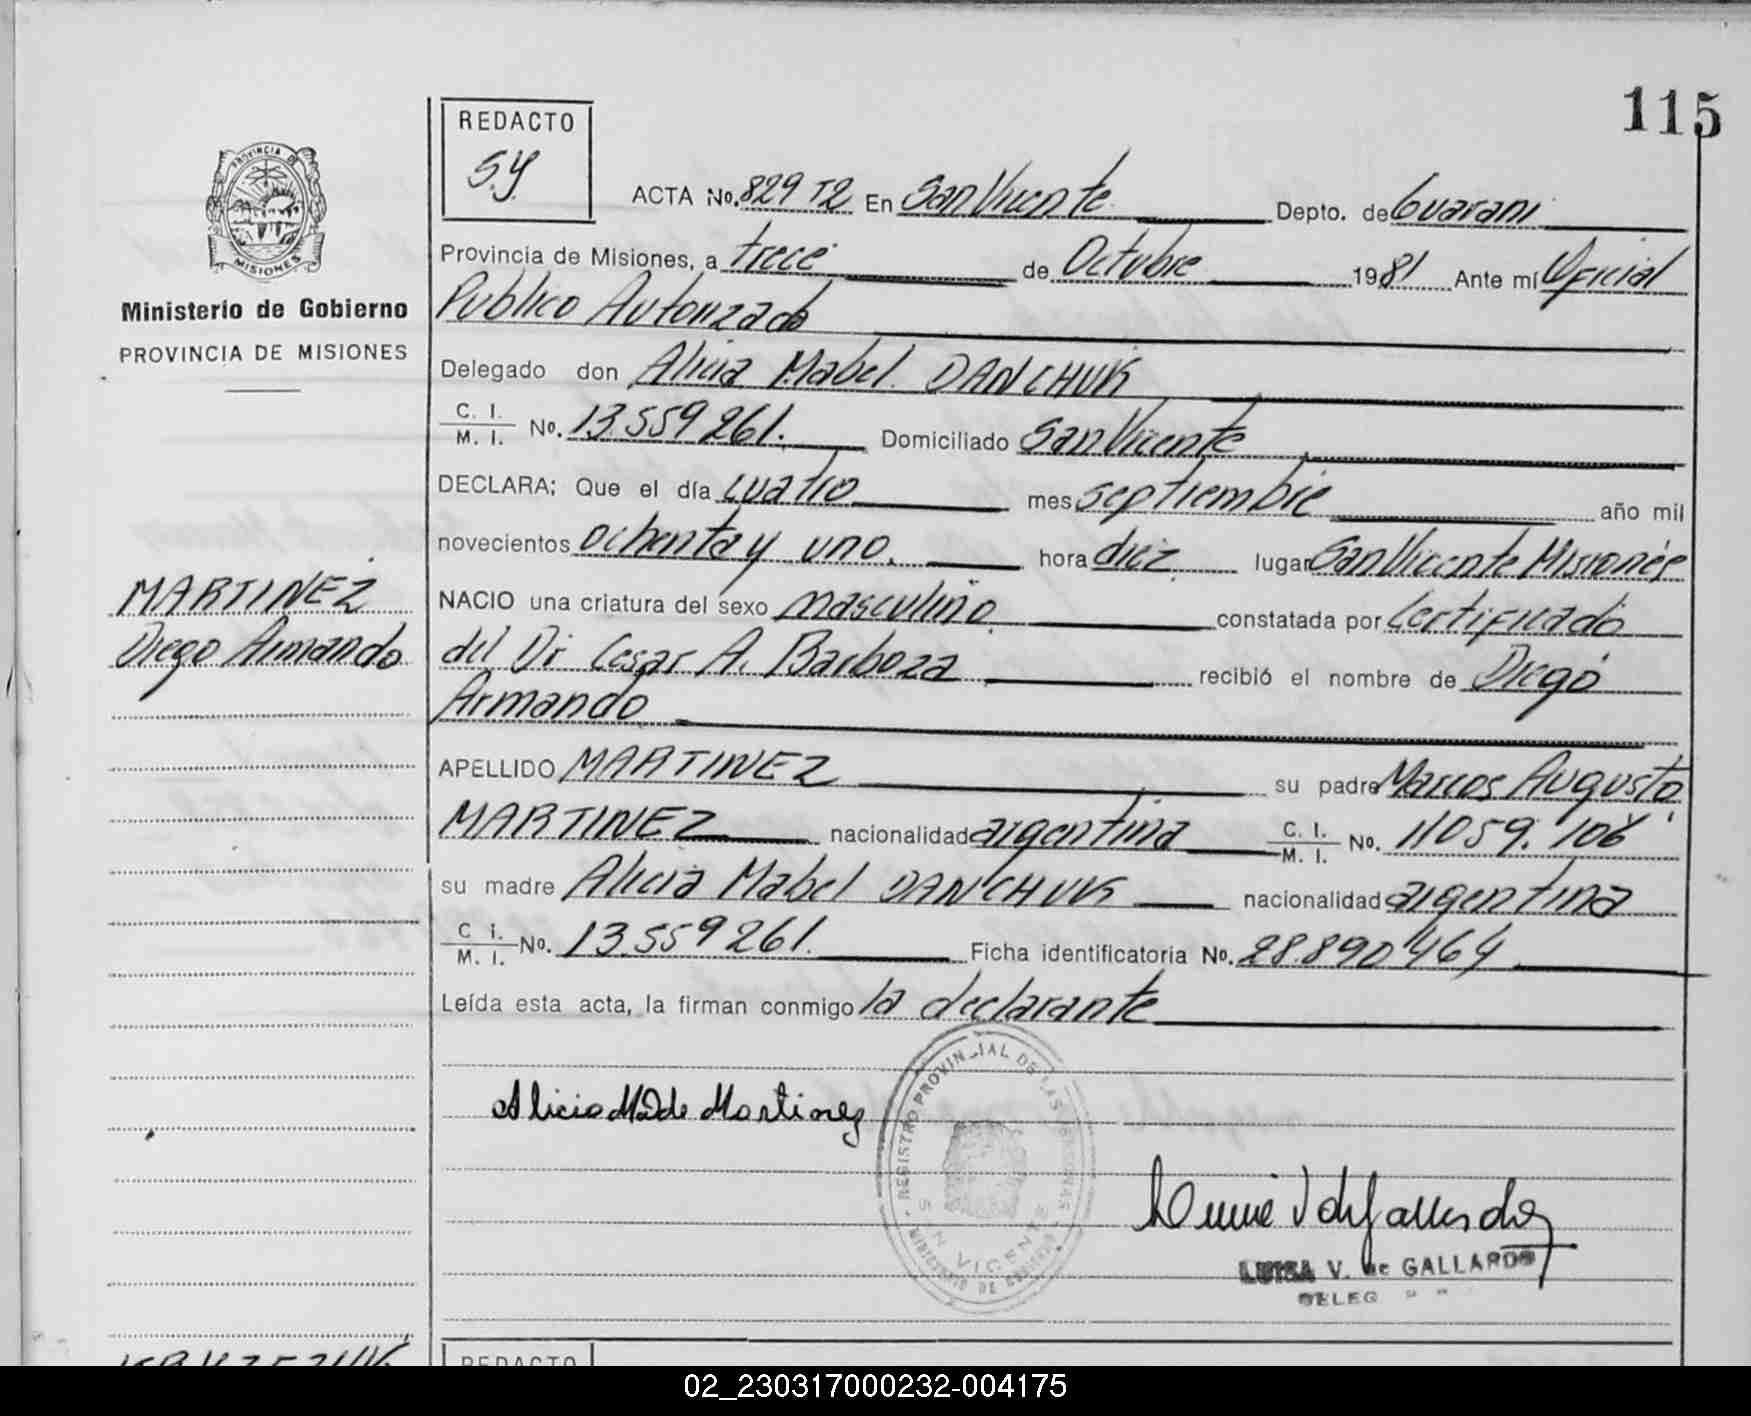 115
REDACTO
S.Y.
PROVINCIA DE
MISIONES
Ministerio de Gobierno
PROVINCIA DE MISIONES
ACTA No. 829 T2 En San Vicente Depto. de Guarani
Provincia de Misiones, a trece de Octubre 1981 Ante mí Oficial
Publico Autorizado
Delegado don Alicia Mabel DANCHUK
C. I.
M. I. No. 13.559261. Domiciliado San Vicente
DECLARA; Que el día cuatro mes septiembre año mil
novecientos ochenta y uno. hora diez lugar San Vicente Misiones
MARTINEZ
Diego Armando
NACIO una criatura del sexo masculino constatada por Certificado
del Dr Cesar A. Barboza recibió el nombre de Diego
Armando
APELLIDO MARTINEZ su padre Marcos Augusto
MARTINEZ nacionalidad argentina C. I.
M. I. No. 11059.106
su madre Alicia Mabel DANCHUK nacionalidad argentina
C I.
M. I. No. 13.559261. Ficha identificatoria No. 28.890464
Leída esta acta, la firman conmigo la declarante
Alicia M D de Martinez
REGISTRO PROVINCIAL DE LAS PERSONAS
SAN VICENTE
MINISTERIO DE GOBIERNO
LUISA V. de GALLARDO
DELEG
REDACTO
02_230317000232-004175